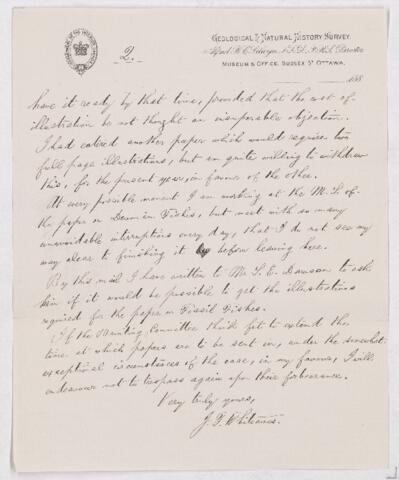 2.
GEOLOGICAL & NATURAL HISTORY SURVEY.
Alfred R. C. Selwyn, L.L.D., F.R.S., Director
MUSEUM & OFFICE, SUSSEX ST OTTAWA.
188
have it ready by that time, provided that the cost of
illustration be not thought an insuperable objection.
I had entered another paper which would require two
full page illustrations, but am quite willing to withdraw
this, for the present year, in favor of the other.
At every possible moment I am working at the M.S. of
the paper on Devonian Fishes, but meet with so many
unavoidable interruptions every day, that I do not see my
way clear to finishing it before leaving here.
By this mail I have written to Mr. S. E. Dawson to ask
him if it would be possible to get the illustrations
required for the paper on Fossil Fishes.
If the Printing Committee think fit to extend the
time at which papers are to be sent in, under the somewhat
exceptional circumstances of the case, in my favour, I will
endeavour not to trespass again upon their forbearance.
Very truly yours,
J. F. Whiteaves.